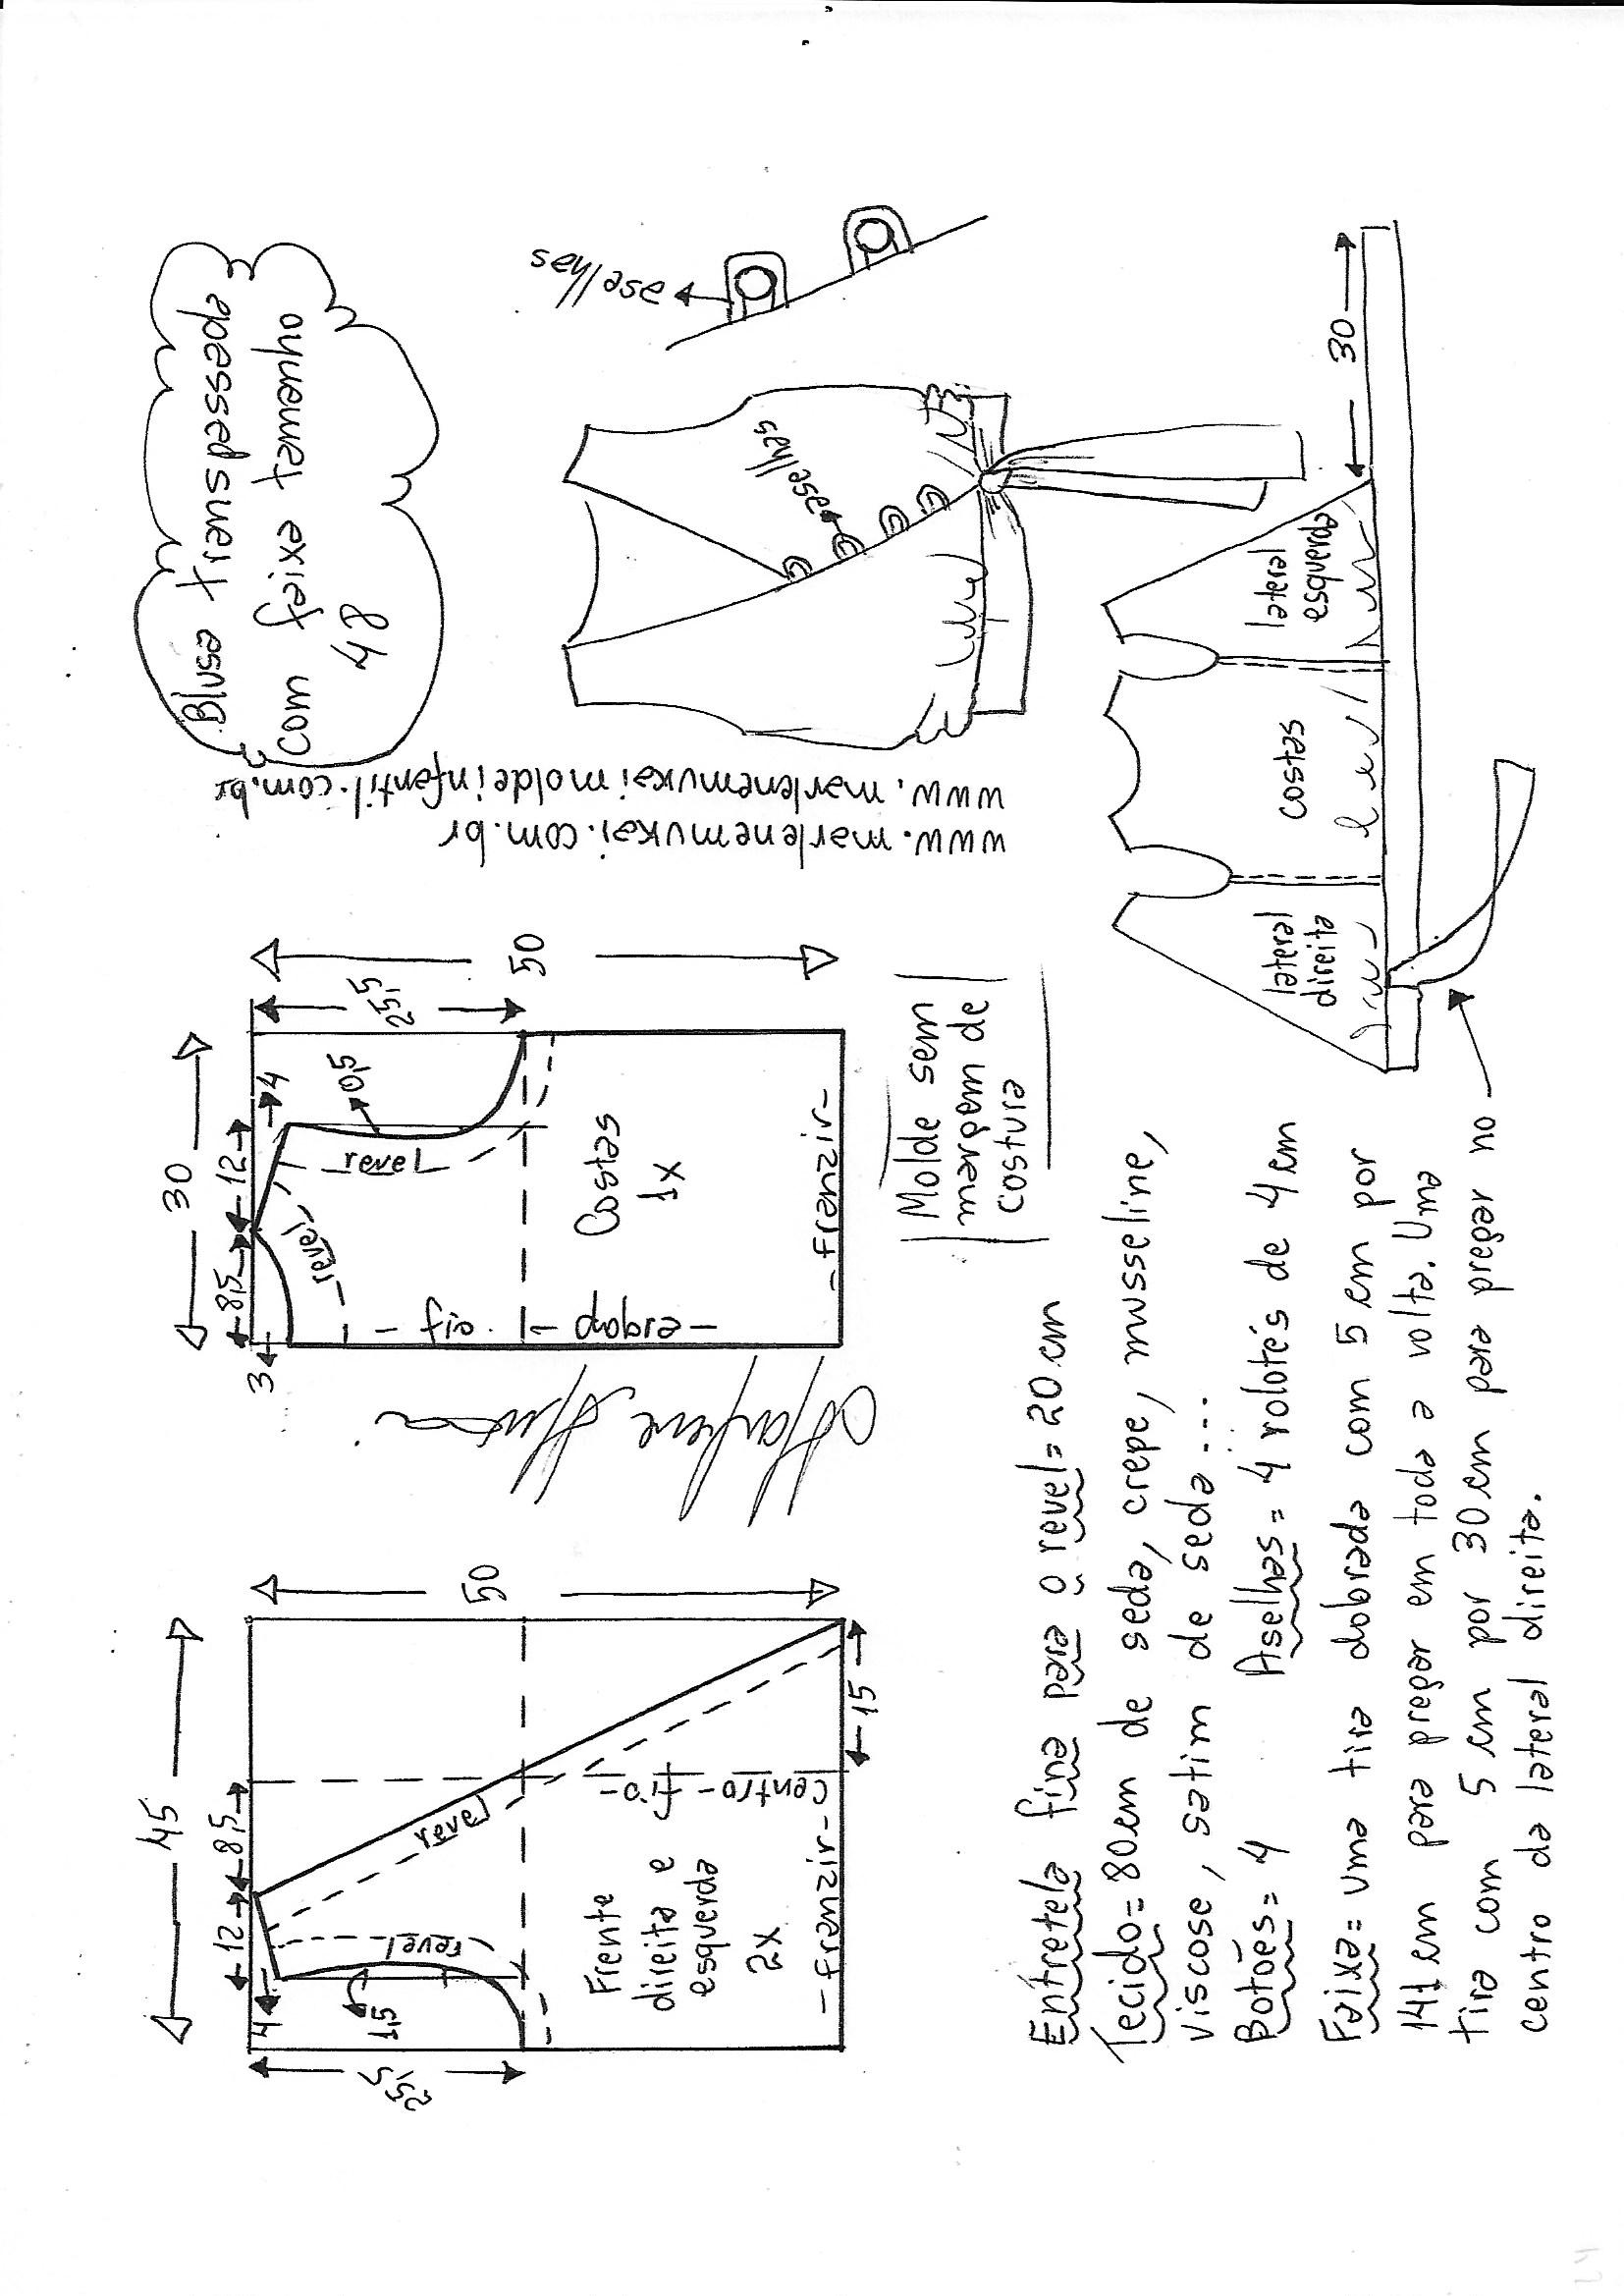 Blusa transpassada
com faixa tamanho
48
45
12
8,5
4
1,5
25,5
50
revel
revel
Frente
direita e
esquerda
2x
centro - fio -
- franzir -
15
30
8,5
12
4
3
0,5
25,5
50
revel
revel
Costas
1x
- fio. - dobra -
- franzir -
Marlene Mukai
www.marlenemukai.com.br
www.marlenemukaimoldeinfantil.com.br
Molde sem
margem de
costura
aselhas
aselhas
Entretela fina para o revel = 20 cm
Tecido = 80 cm de seda, crepe, musseline,
viscose, satim de seda...
Botões = 4 Aselhas = 4 rolotés de 4 cm
Faixa = uma tira dobrada com 5 cm por
141 cm para pregar em toda a volta. Uma
tira com 5 cm por 30 cm para pregar no
centro da lateral direita.
lateral
direita
costas
lateral
esquerda
30